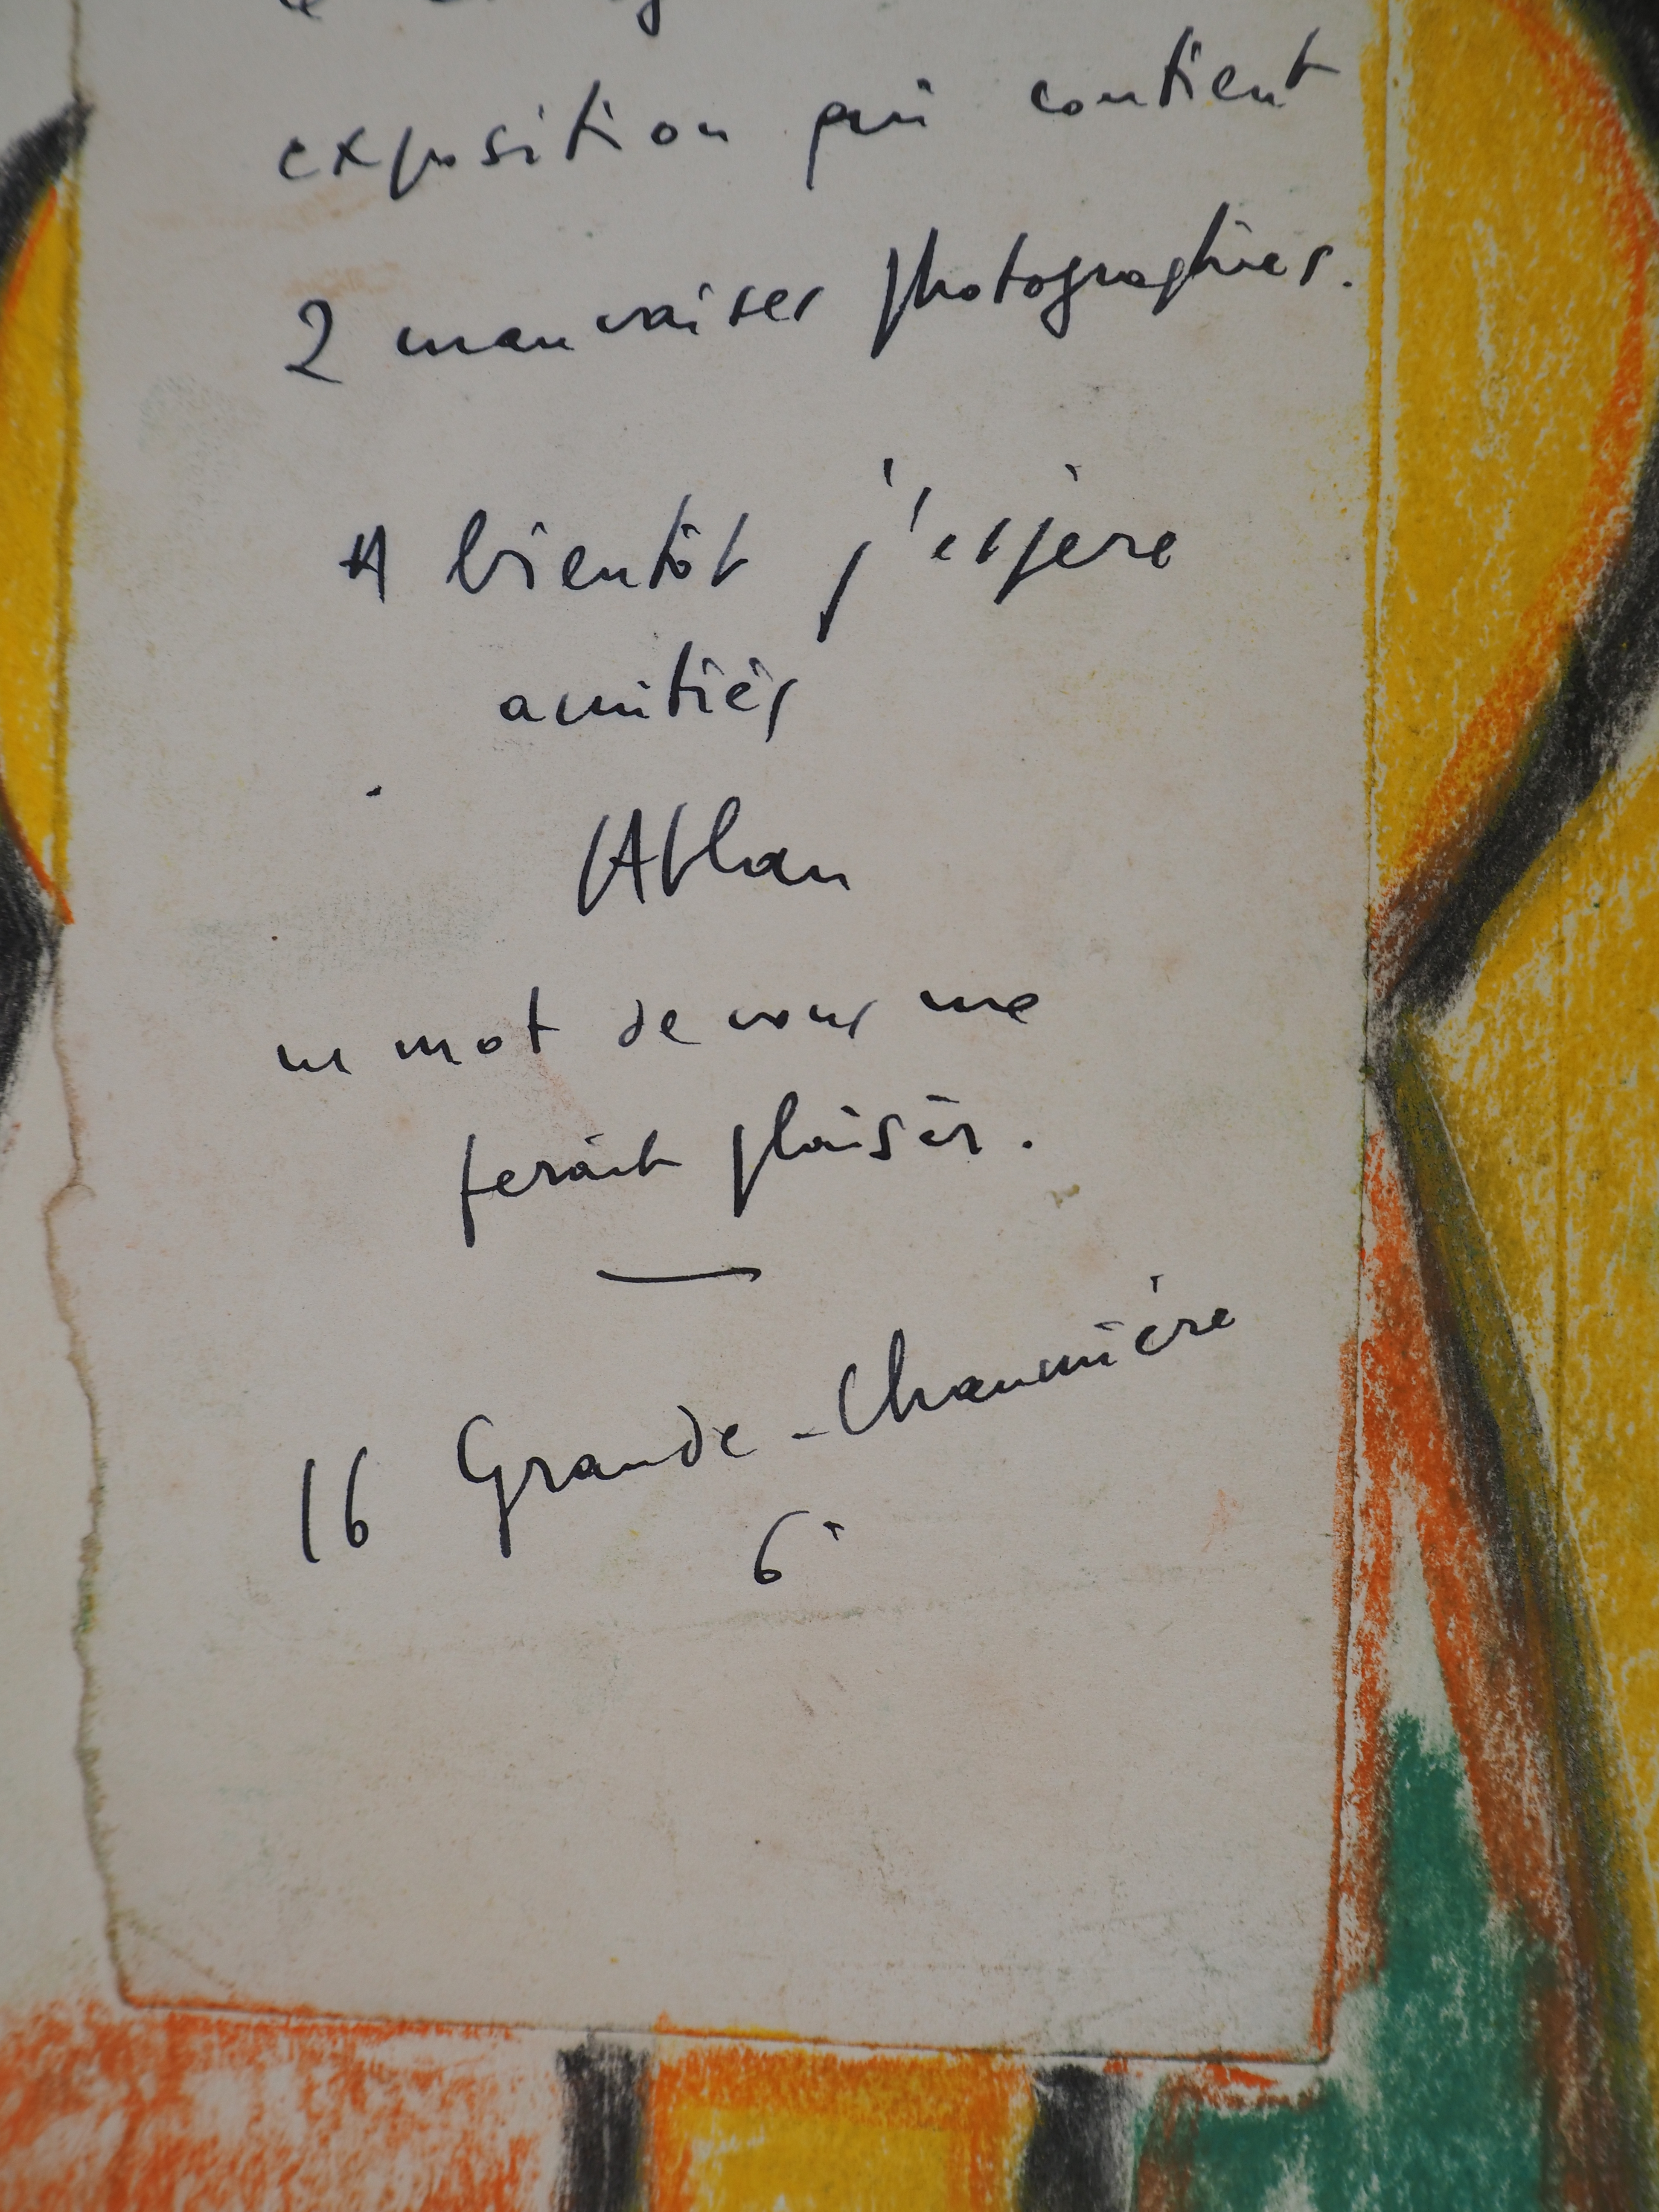 exposition qui contient
2 mauvaises photographies.
A bientôt j'espère
amitiés
Atlan
un mot de vous me
ferait plaisir.
16 Grande-Chaumière
6è